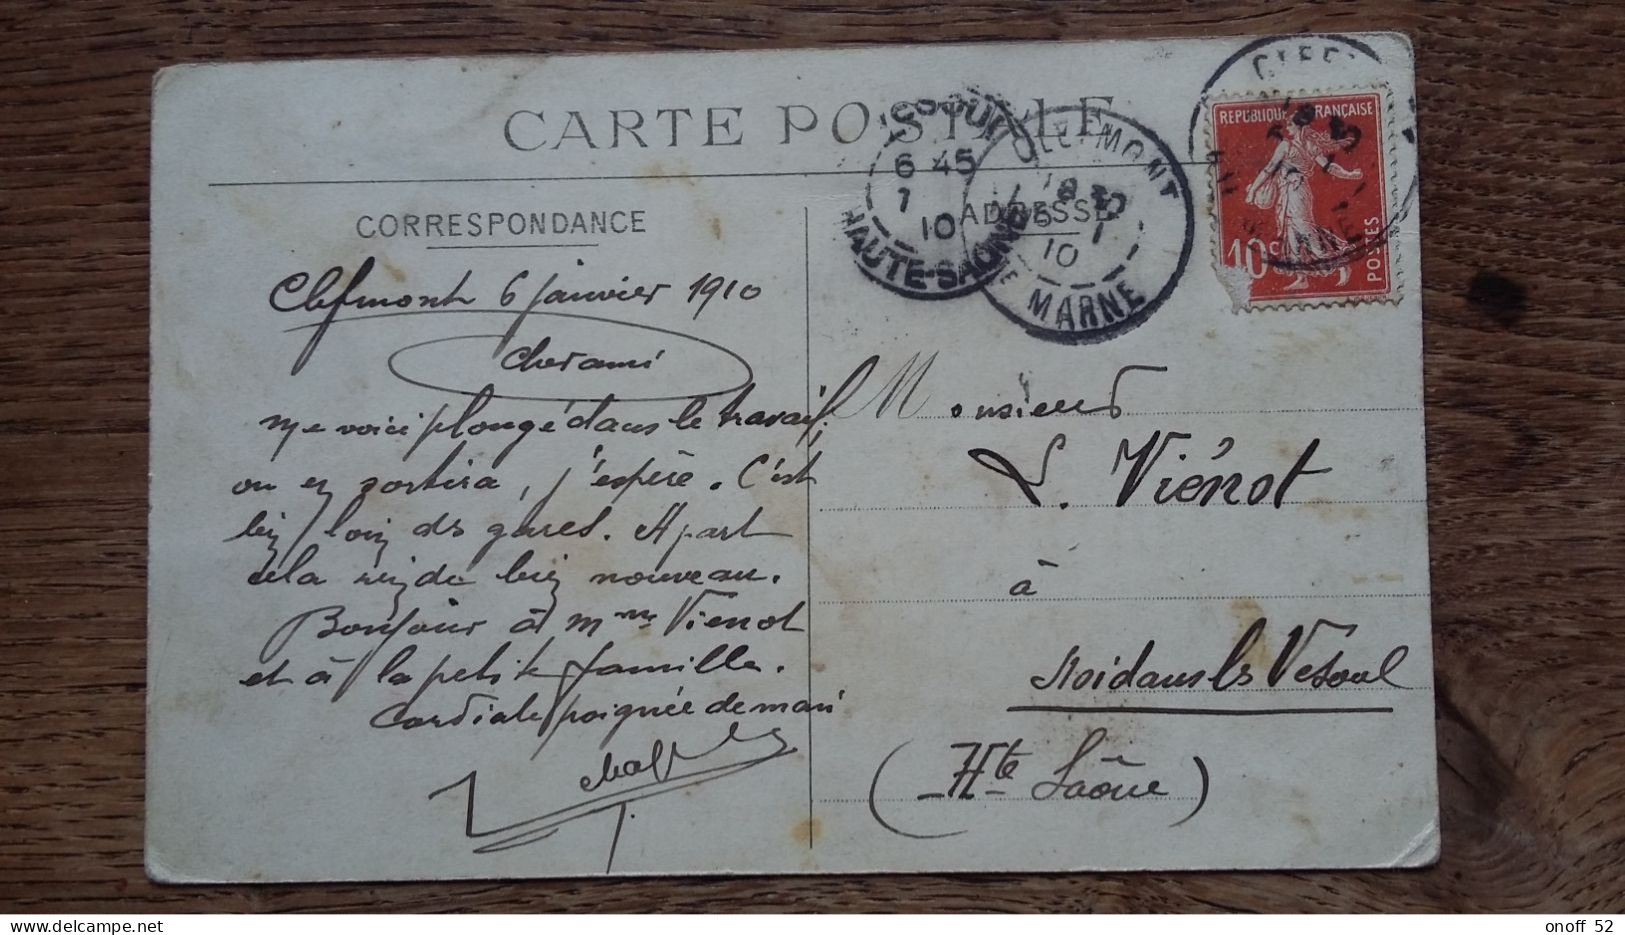 CARTE POSTALE
CORRESPONDANCE
ADRESSE
6 45
7 1
10
HAUTE-SAONE
CLEFMONT
18
6 1
10
HTE MARNE
REPUBLIQUE FRANÇAISE
10 c
POSTES
Clefmont 6 janvier 1910
Cher ami
Me voici plongé dans le travail,
on en sortira, j'espère. C'est
bien loin des gares. A part
cela rien de bien nouveau.
Bonjour à Mme Viénot
et à la petite famille.
Cordiale poignée de main
Monsieur
L. Viénot
à
Noidans les Vesoul
(Hte Saône)
onoff 52